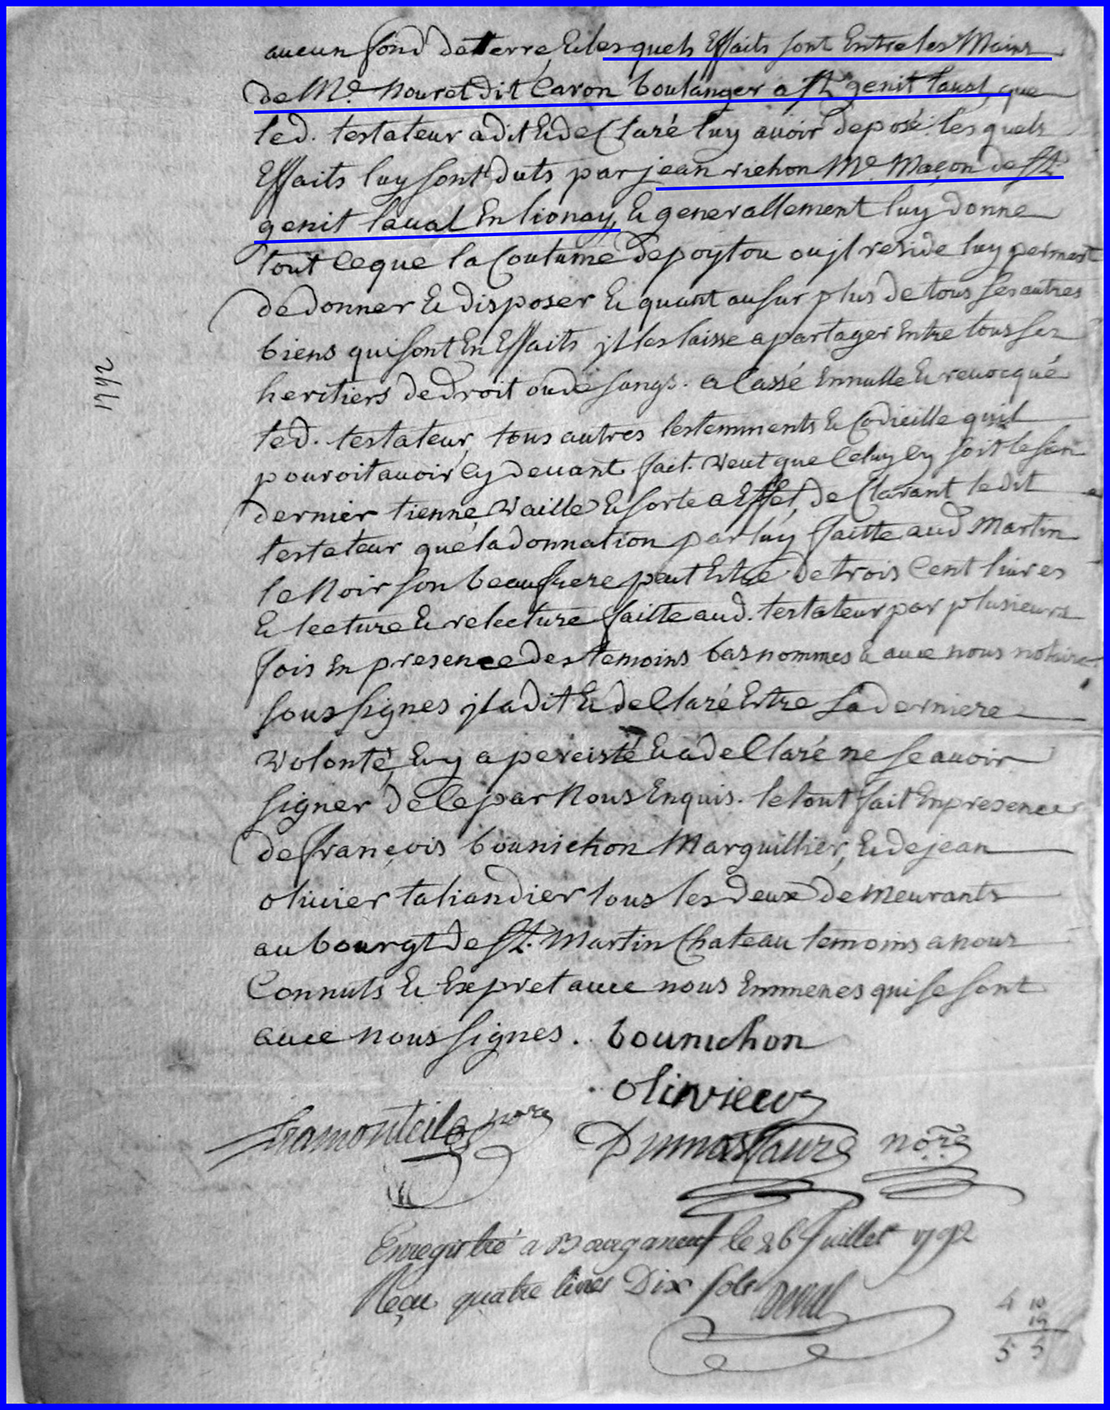 aucun fond de terre, & les quels Effaits sont Entre les Mains
de Me. Nouret dit Caron boulanger a St genit laual, que
led. testateur a dit & de Claré luy auoir deposé. les quels
Effaits luy sont duts par jean richon Me Maçon de St
genit laual En lionay, & generallement luy donne
tout ce que la Coutume de poytou ou jl reside luy permet
de donner & disposer & quant au sur plus de tous ses autres
biens qui sont En Effaits jl les laisse a partager Entre tous ses
heritiers de droit ou de sangs. a Cassé Ennulle & reuocqué
led. testateur, tous autres testemments & Codicille quil
pouroit auoir Cy deuant fait. Veut que Celuy Cy soit le sen
dernier tienne, Vaille & sorte a Effet, de Clarant le dit
testateur que la donnation par luy faitte aud Martin
le Noir son beaufrere peut Estre de trois Cent liures
& lecture & relecture faitte aud. testateur par plusieurs
fois En presence des temoins bas nommes & auec nous notaires
sous signes jl a dit & de Claré Estre sa derniere
Volonté, & y a perciste & a de Claré ne se auoir
signer de Ce par Nous Enquis. le tout fait En presence
de françois bounichon Marguillier, & de jean
oliuier taliandier tous les deux de Meurants
au bourgt de St. Martin Chateau temoins a nous
Connuts & Expret auec nous Emmenes qui se sont
auec nous signes. bounichon
oliuieer
Tramonteil nore Dumasfaure nore
Enregistré a Bourganeuf le 26 Juillet 1792
Reçu quatre livres Dix sols
1792
4 10
15
5 5